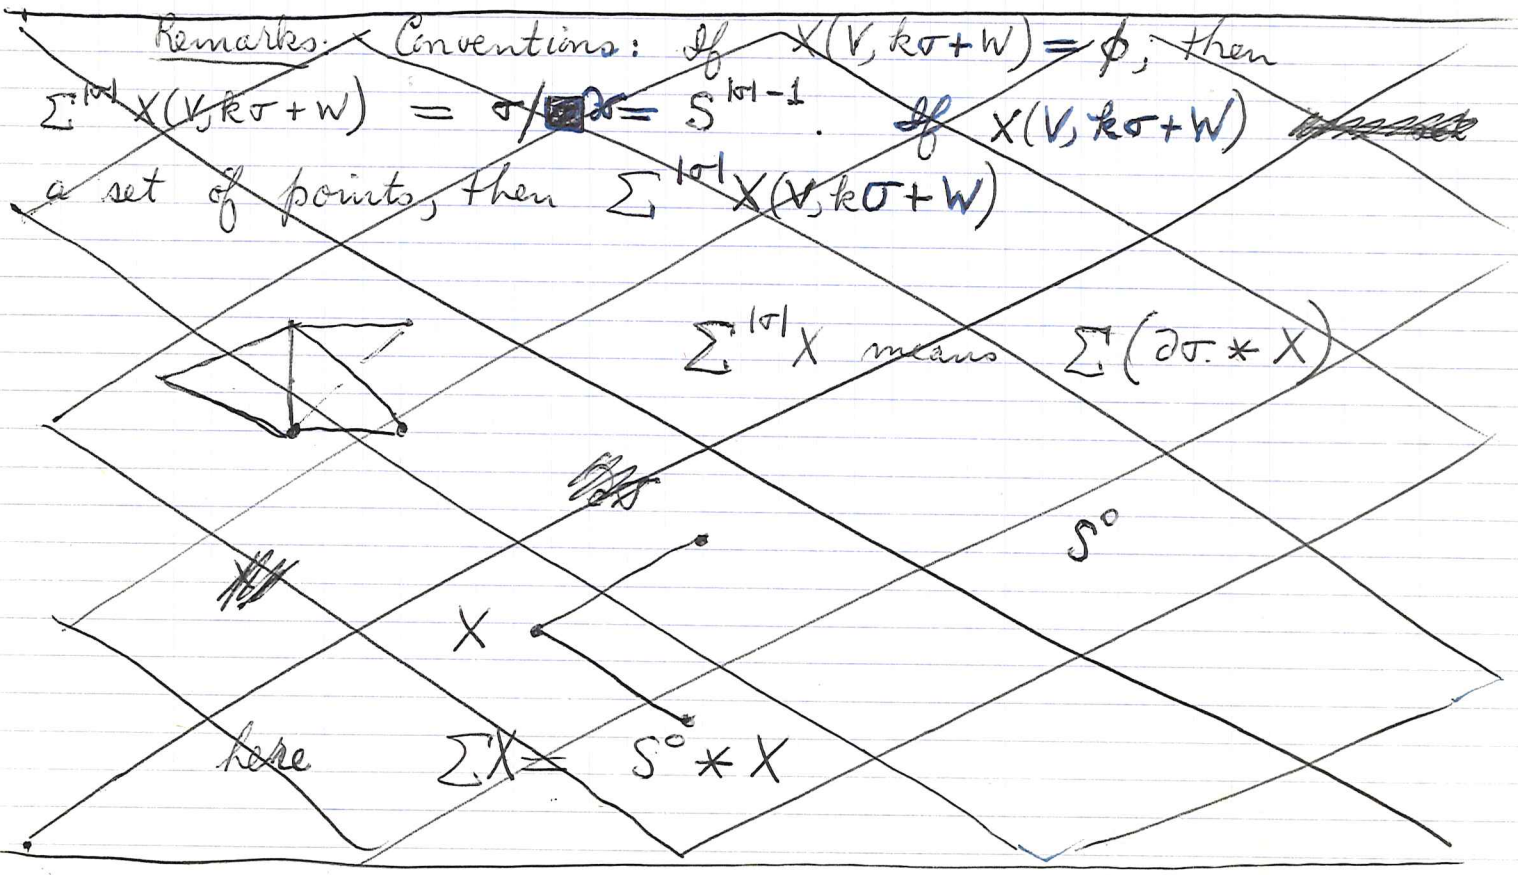 Remarks. Conventions: If X(V, kσ+W) = ∅, then
Σ^|σ| X(V, kσ+W) = σ/∂σ = S^|σ|-1. If X(V, kσ+W)
a set of points, then Σ^|σ| X(V, kσ+W)
Σ^|σ| X means Σ(∂σ * X)
S⁰
X
here ΣX = S⁰ * X